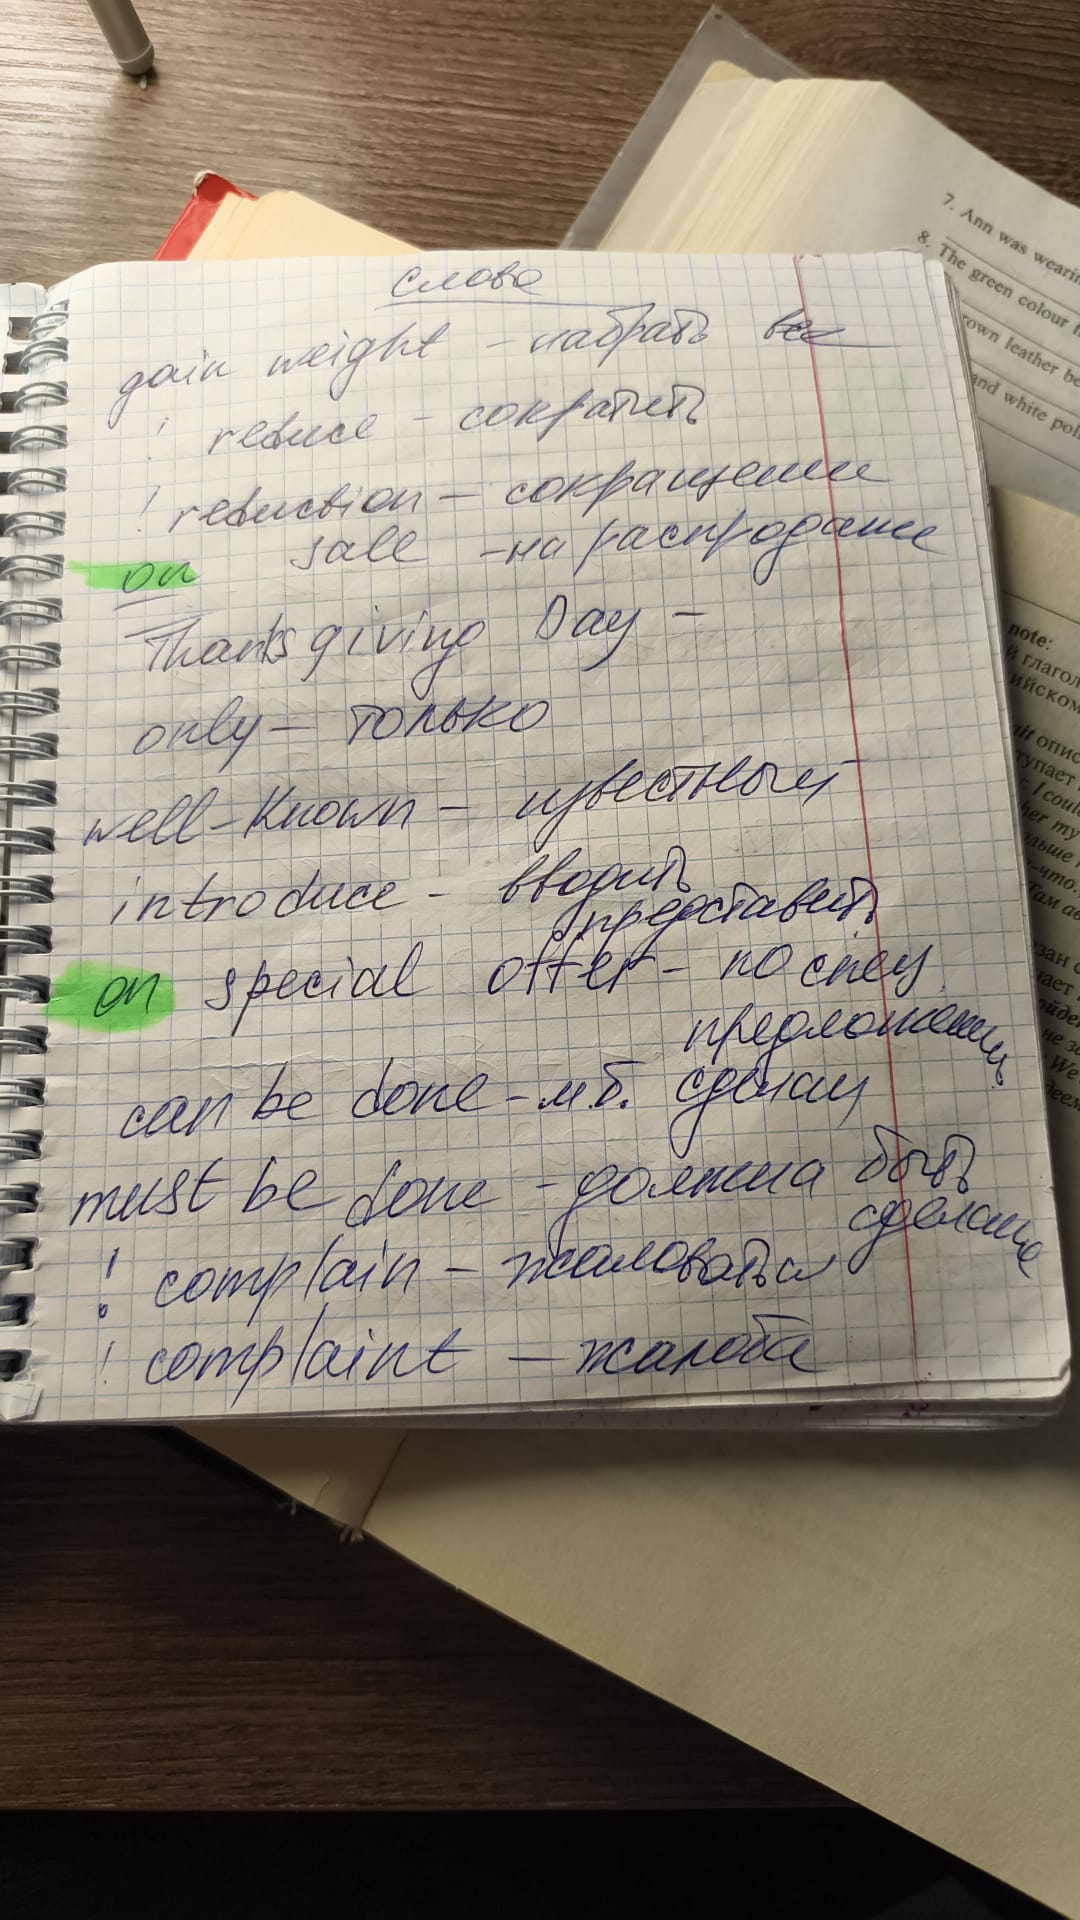 слова
gain weight - набрать вес
! reduce - сократить
! reduction - сокращение
on sale - на распродаже
Thanksgiving Day -
only - только
well-known - известный
introduce - вводить
представить
on special offer - по спец.
предложению
can be done - м.б. сделан
must be done - должна быть
сделана
! complain - жаловаться
! complaint - жалоба
7. Ann was weari
8. The green colour
rown leather be
and white pol
note:
й глагол
ийском
nit опис
тупает
I coul
her my